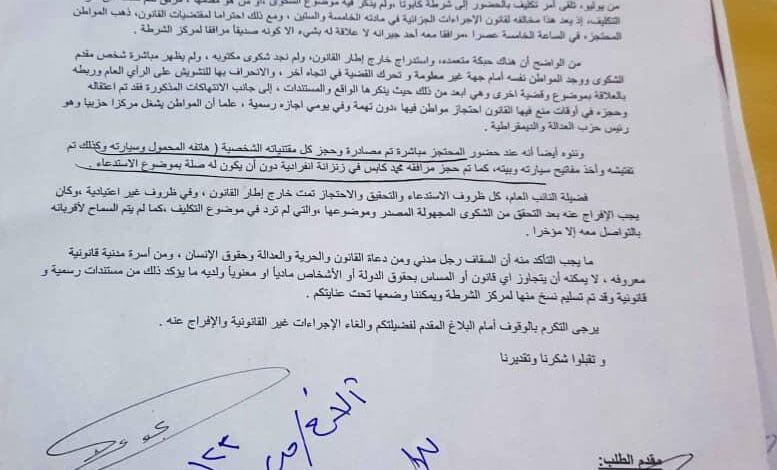 من يوليو، تلقى أمر تكليف بالحضور إلى شرطة كابوتا ،ولم يذكر فيه موضوع الشكوى
التكليف، إذ يعد هذا مخالفه لقانون الإجراءات الجزائية في مادته الخامسة والستين ، ومع ذلك احتراما لمقتضيات القانون، ذهب المواطن
المحتجز، في الساعة الخامسة عصرا ،مرافقا معه أحد جيرانه لا علاقة له بشيء الا كونه صديقاً مرافقا لمركز الشرطة .
من الواضح أن هناك حبكة متعمده، واستدراج خارج إطار القانون، ولم نجد شكوى مكتوبه ، ولم يظهر مباشرة شخص مقدم
الشكوى ووجد المواطن نفسه أمام جهة غير معلومة و تحرك القضية في اتجاه آخر ، والانحراف بها للتشويش على الرأي العام وربطه
بالعلاقة بموضوع وقضية اخرى وهي ابعد من ذلك حيث ينكرها الواقع والمستندات ، إلى جانب الانتهاكات المذكورة فقد تم اعتقاله
وحجزه في أوقات منع فيها القانون احتجاز مواطن فيها ،دون تهمة وفي يومي اجازه رسمية ، علما أن المواطن يشغل مركزا حزبيا وهو
رئيس حزب العدالة والديمقراطية .
وننوه أيضاً أنه عند حضور المحتجز مباشرة تم مصادرة وحجز كل مقتنياته الشخصية ( هاتفه المحمول وسيارته وكذلك تم
تفتيشه وأخذ مفاتيح سيارته وبيته، كما تم حجز مرافقه محمد كابس في زنزانة انفرادية دون أن يكون له صلة بموضوع الاستدعاء .
فضيلة النائب العام، كل ظروف الاستدعاء والتحقيق والاحتجاز تمت خارج إطار القانون ، وفي ظروف غير اعتيادية ،وكان
يجب الإفراج عنه بعد التحقق من الشكوى المجهولة المصدر وموضوعها ،والتي لم ترد في موضوع التكليف ،كما لم يتم السماح لأقربائه
بالتواصل معه إلا مؤخرا .
ما يجب التأكد منه أن السقاف رجل مدني ومن دعاة القانون والحرية والعدالة وحقوق الإنسان ، ومن أسرة مدنية قانونية
معروفه ، لا يمكنه أن يتجاوز اي قانون أو المساس بحقوق الدولة أو الأشخاص مادياً او معنوياً ولديه ما يؤكد ذلك من مستندات رسمية و
قانونية وقد تم تسليم نسخ منها لمركز الشرطة ويمكننا وضعها تحت عنايتكم .
يرجى التكرم بالوقوف أمام البلاغ المقدم لفضيلتكم والغاء الإجراءات غير القانونية والإفراج عنه .
و تقبلوا شكرنا وتقديرنا
مقدم الطلب: